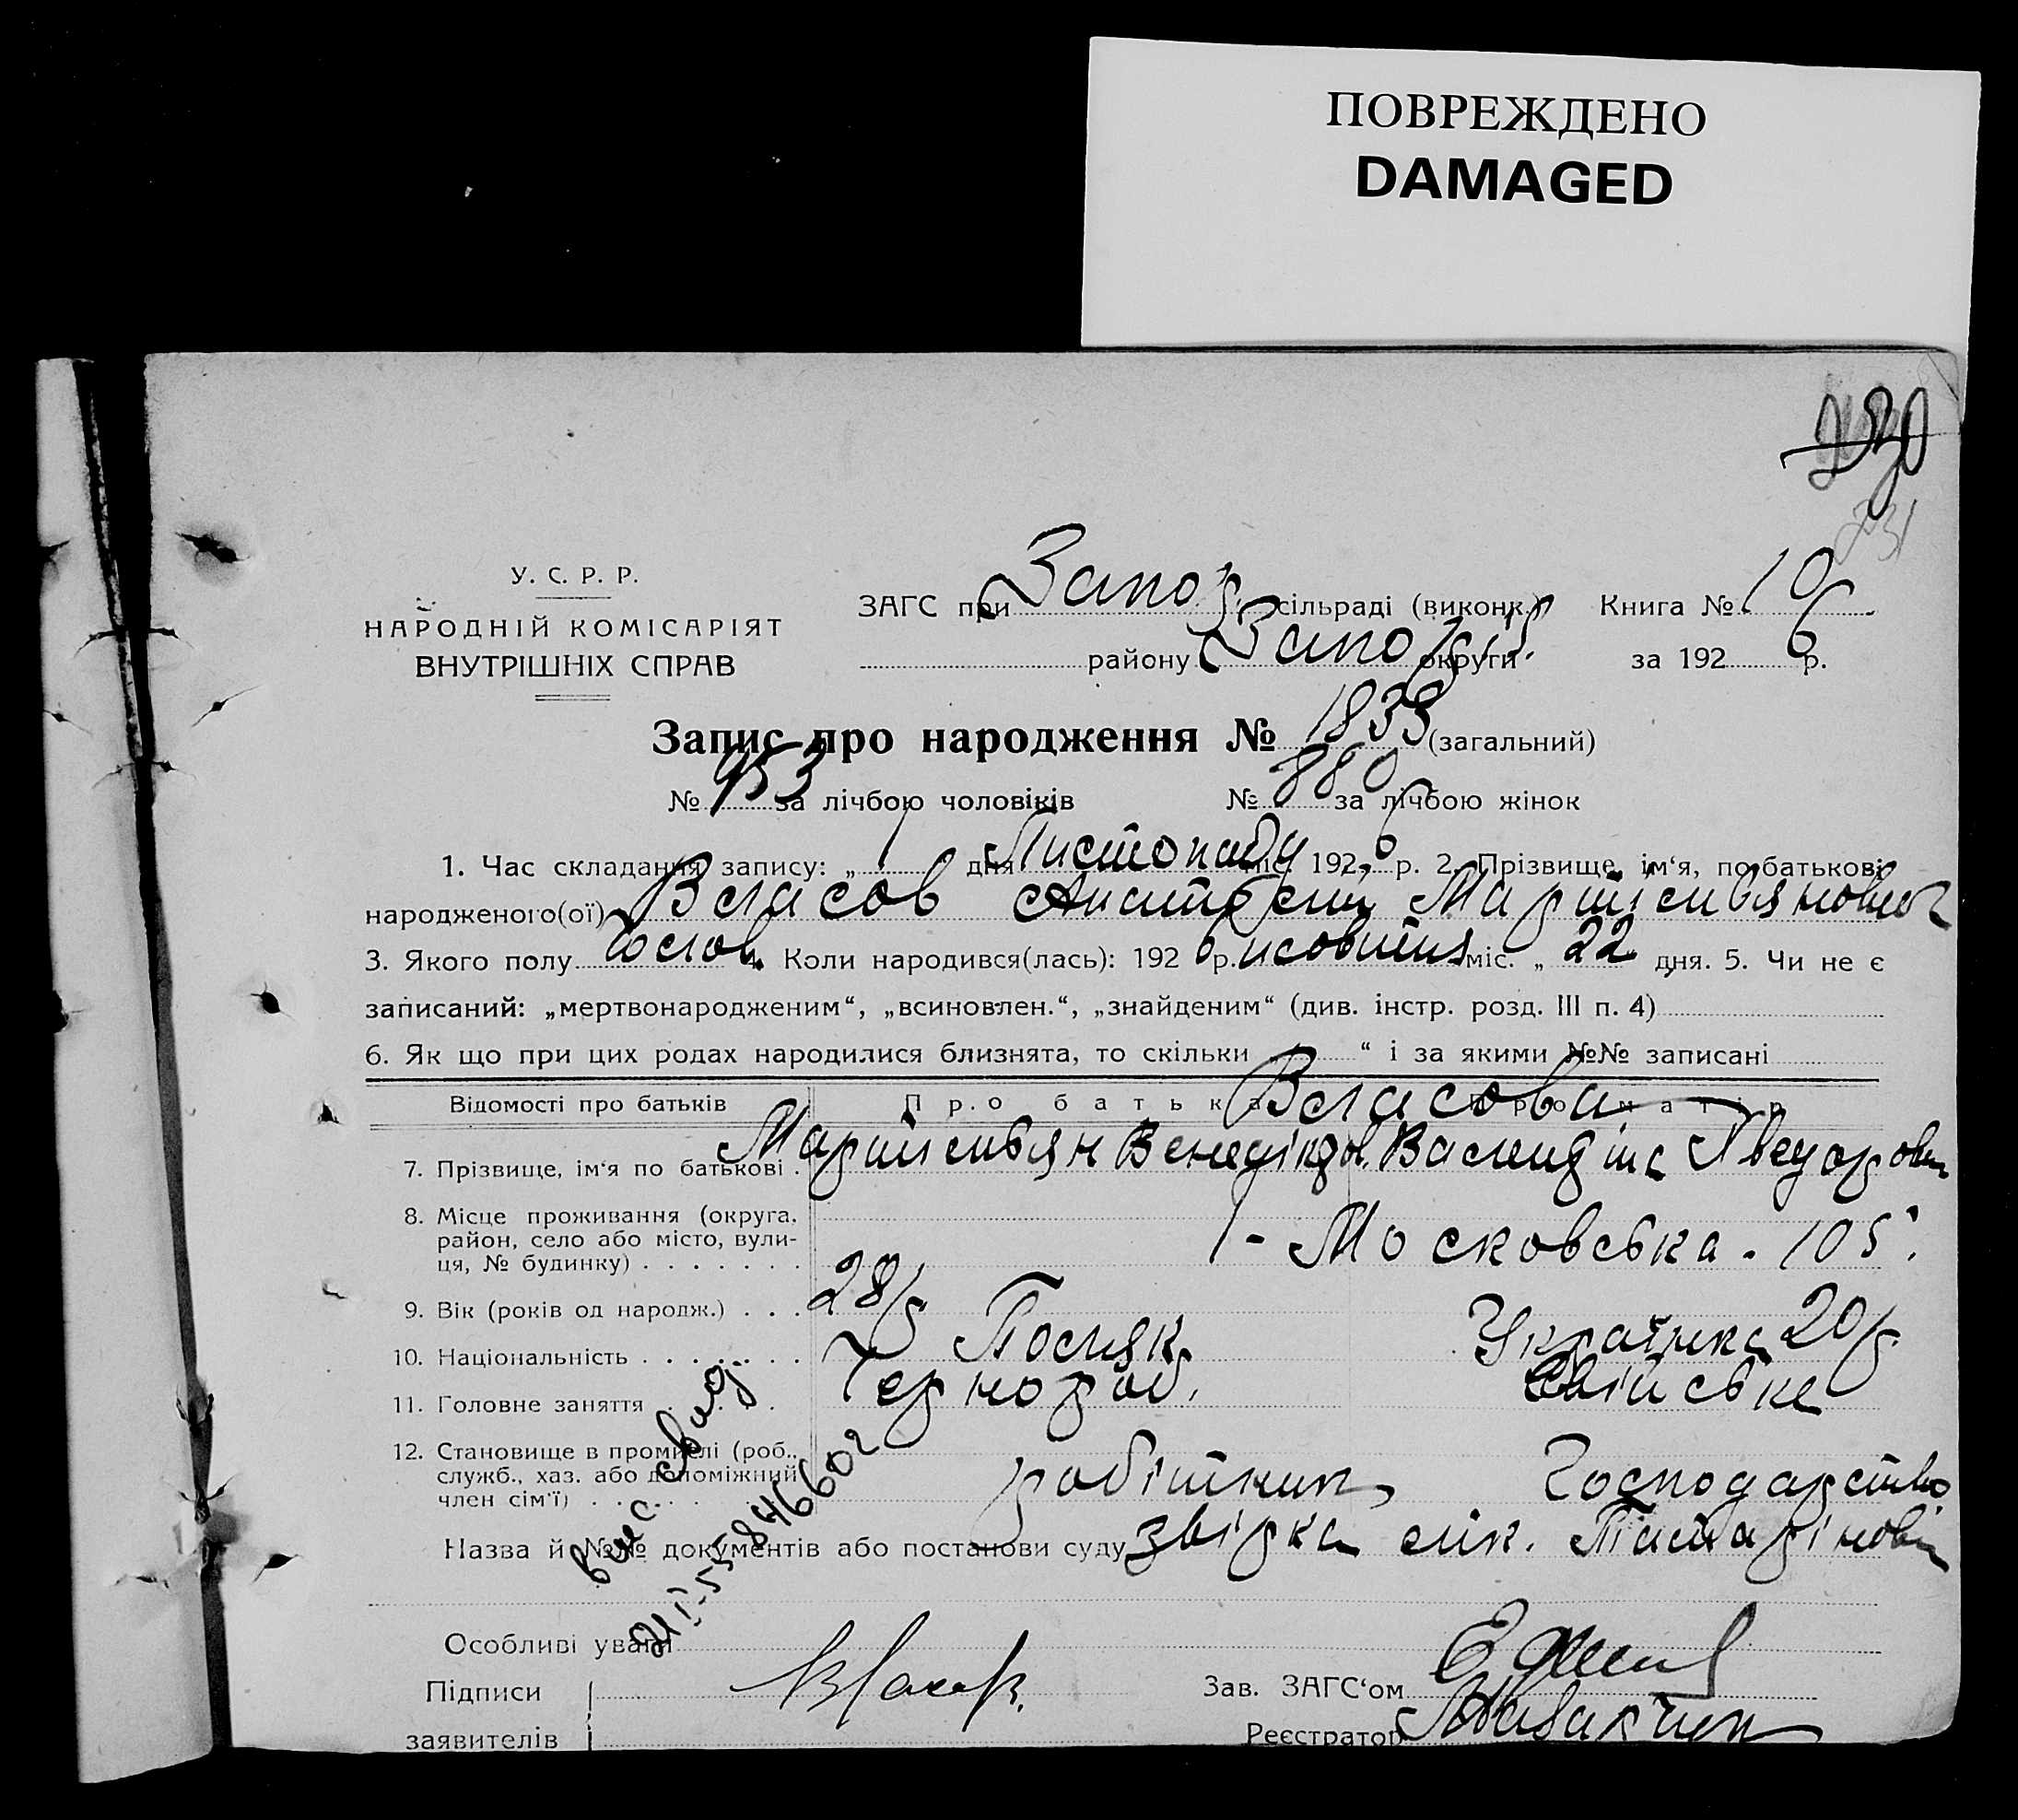 ПОВРЕЖДЕНО
DAMAGED
230
231
У. С. Р. Р.
НАРОДНІЙ КОМІСАРІЯТ
ВНУТРІШНІХ СПРАВ
ЗАГС при Запор. сільраді (виконк.) Книга № 10
району Запоріз. округи за 1926 р.
Запис про народження № 1833 (загальний)
№ 953 за лічбою чоловіків № 880 за лічбою жінок
1. Час складання запису: „ 1 дня Листопаду міс. 1926 р. 2. Прізвище, ім‘я, по батькові
народженого(ої) Власов
3. Якого полу чолов. 4. Коли народився(лась): 1926 р. жовтня міс. „ 22 дня. 5. Чи не є
записаний: „мертвонародженим“, „всиновлен.“, „знайденим“ (див. інстр. розд. III п. 4)
6. Як що при цих родах народилися близнята, то скільки „ “ і за якими №№ записані
Відомості про батьків Про батька Власова Про матір
7. Прізвище, ім‘я по батькові . Мартимьян
8. Місце проживання (округа, район, село або місто, вули-
ця, № будинку) . . . . . . . 1 - Московська. 105.
9. Вік (років од народж.) . . . 28/р 20/р
10. Національність . . . . . . . Поляк Українка
11. Головне заняття . . . . Чернороб. Хатнське
12. Становище в промислі (роб., служб., хаз. або допоміжний
член сім‘ї) . . . . робітник господарство
Назва й №№ документів або постанови суду звірка лік.
вис. свид.
55 8466602
Особливі уваги
Підписи
заявителів
Зав. ЗАГС‘ом
Реєстратор